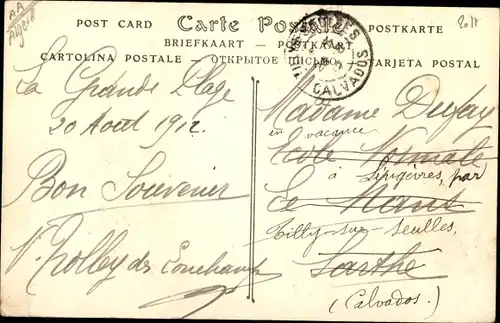 AA
Algeria
POST CARD Carte Postale POSTKARTE
BRIEFKAART — POSTKAART
CARTOLINA POSTALE — ОТКРЫТОЕ ПИСЬМО — TARJETA POSTAL
CALVADOS
La Grande Plage
20 Aout 1912
Bon Souvenir
Madame Dufay
en vacance
Ecole Normale
à Lingèvres, par
Le Mans
Tilly-sur-Seulles,
Sarthe
(Calvados.)